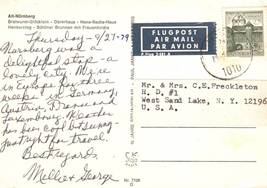 Alt-Nürnberg
Bratwurst-Glöcklein - Dürerhaus - Hans-Sachs-Haus
Henkersteg - Schöner Brunnen mit Frauenkirche
Thursday - 9/27-79
Nurnberg was a
delightful stop - a
lovely city. We're
in Europe for three
weeks - Germany,
Austria, France and
Luxembourg. Weather
has been cool but sunny -
just right for travel.
Best regards,
Mollie & George
FLUGPOST
AIR MAIL
PAR AVION
1010
Mr. & Mrs. C.E. Freckleton
H.D. #1
West Sand Lake, N.Y. 12196
U. S. A.